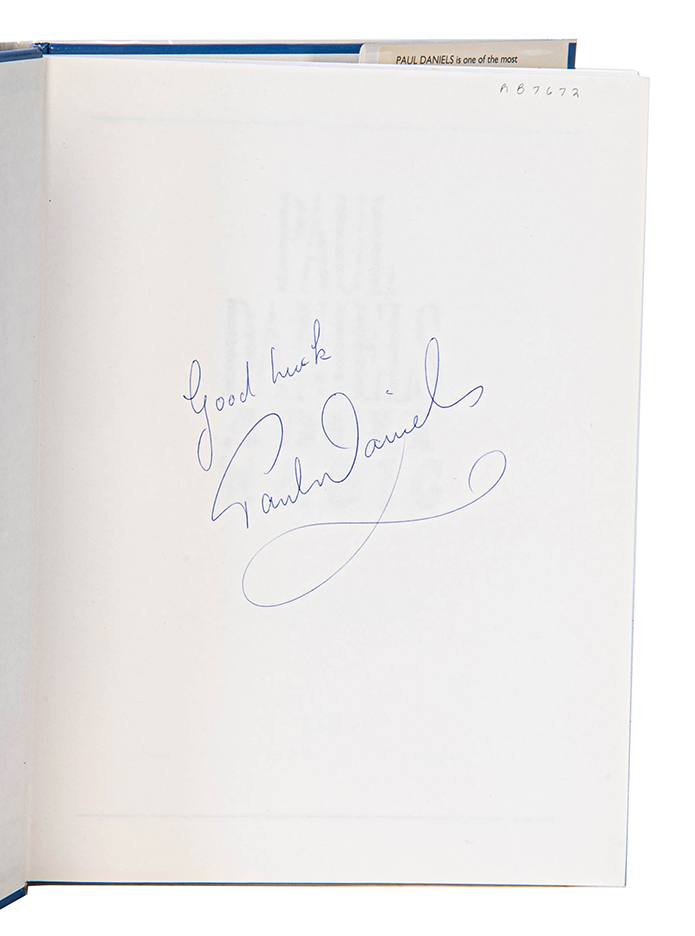 PAUL DANIELS is one of the most
AB7672
Good Luck
Paul Daniels
PAUL
DANIELS